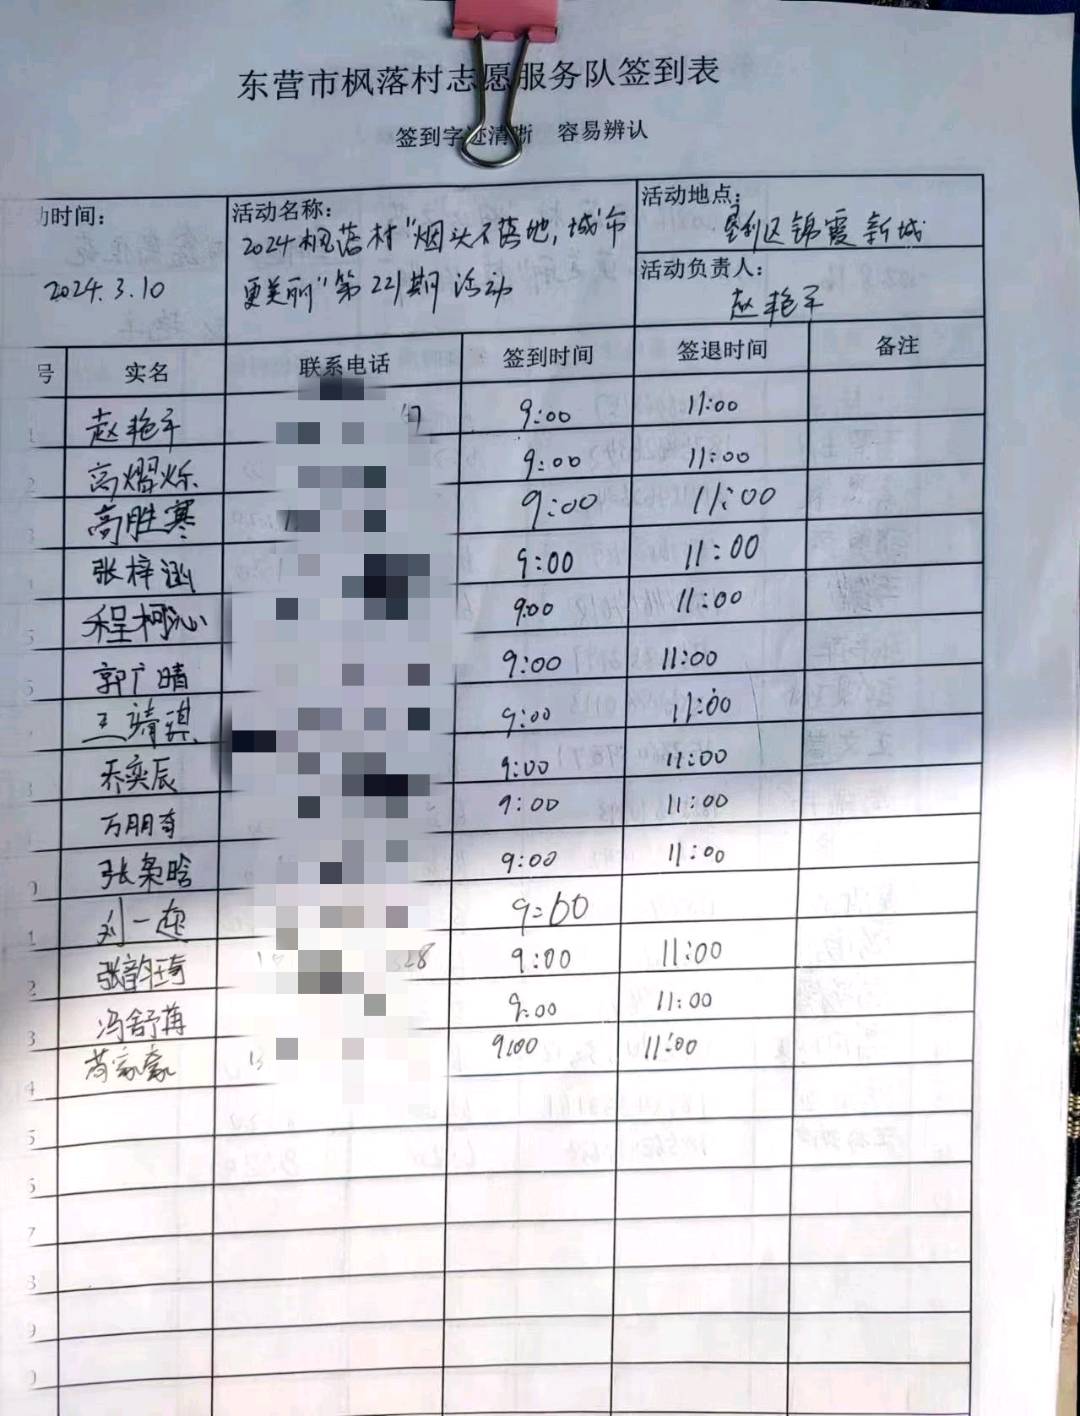 东营市枫落村志愿服务队签到表
签到字迹清晰 容易辨认
动时间:
2024.3.10
活动名称:
2024枫落村"烟头不落地,城市
更美丽"第221期活动
活动地点:
垦利区锦霞新城
活动负责人:
赵艳平
号 实名 联系电话 签到时间 签退时间 备注
1 赵艳平 9:00 11:00
2 高熠烁 9:00 11:00
3 高胜寒 9:00 11:00
张梓涵 9:00 11:00
5 程柯沁 9:00 11:00
郭广晴 9:00 11:00
王靖琪 9:00 11:00
乔奕辰 9:00 11:00
万朋奇 9:00 11:00
0 张枭晗 9:00 11:00
1 刘一 9:00
2 张韵琦 28 9:00 11:00
3 冯舒苒 9:00 11:00
4 家豪 9:00 11:00
5
6
7
8
9
0